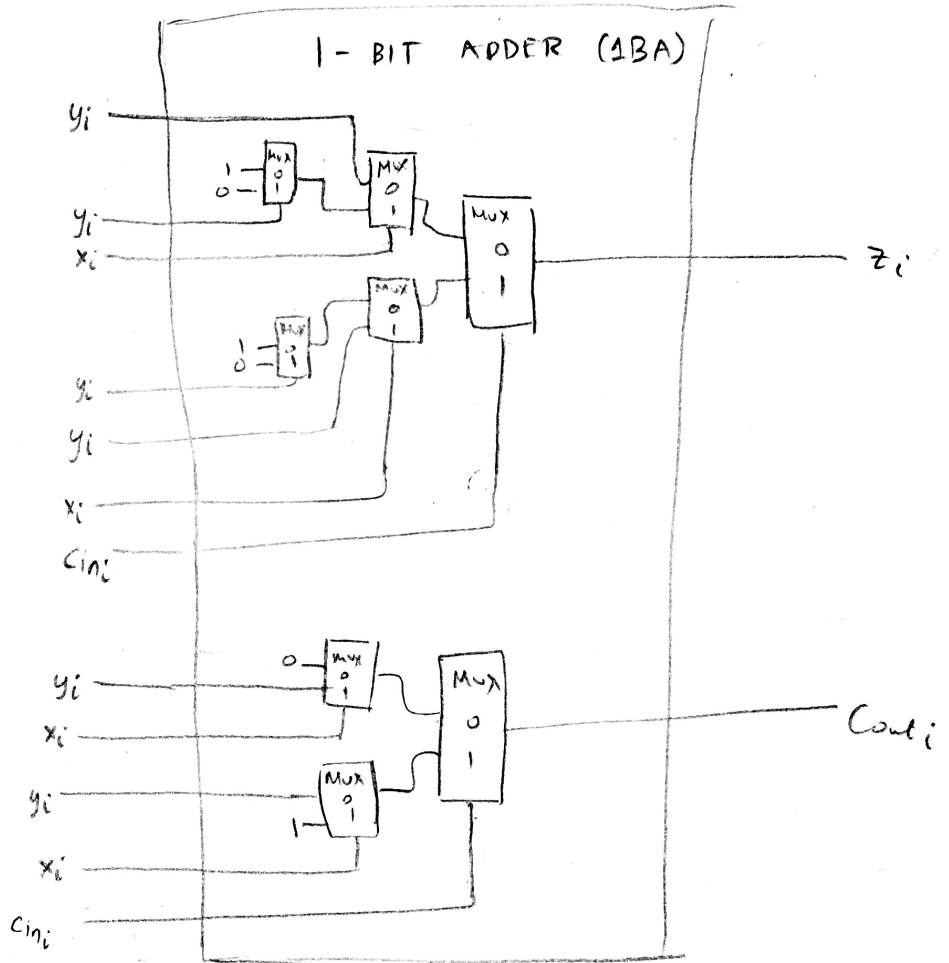 1-BIT ADDER (1BA)
yi
MUX
0
1
1
0
MUX
0
1
yi
xi
MUX
0
1
zi
MUX
0
1
1
0
MUX
0
1
yi
yi
xi
Cini
0
MUX
0
1
yi
xi
MUX
0
1
Couti
yi
MUX
0
1
1
xi
Cini